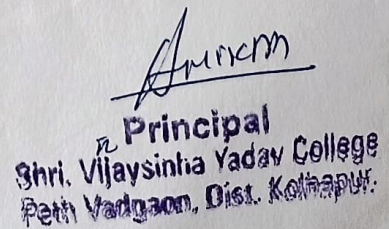 Principal
Shri. Vijaysinha Yadav College
Peth Vadgaon, Dist. Kolhapur.